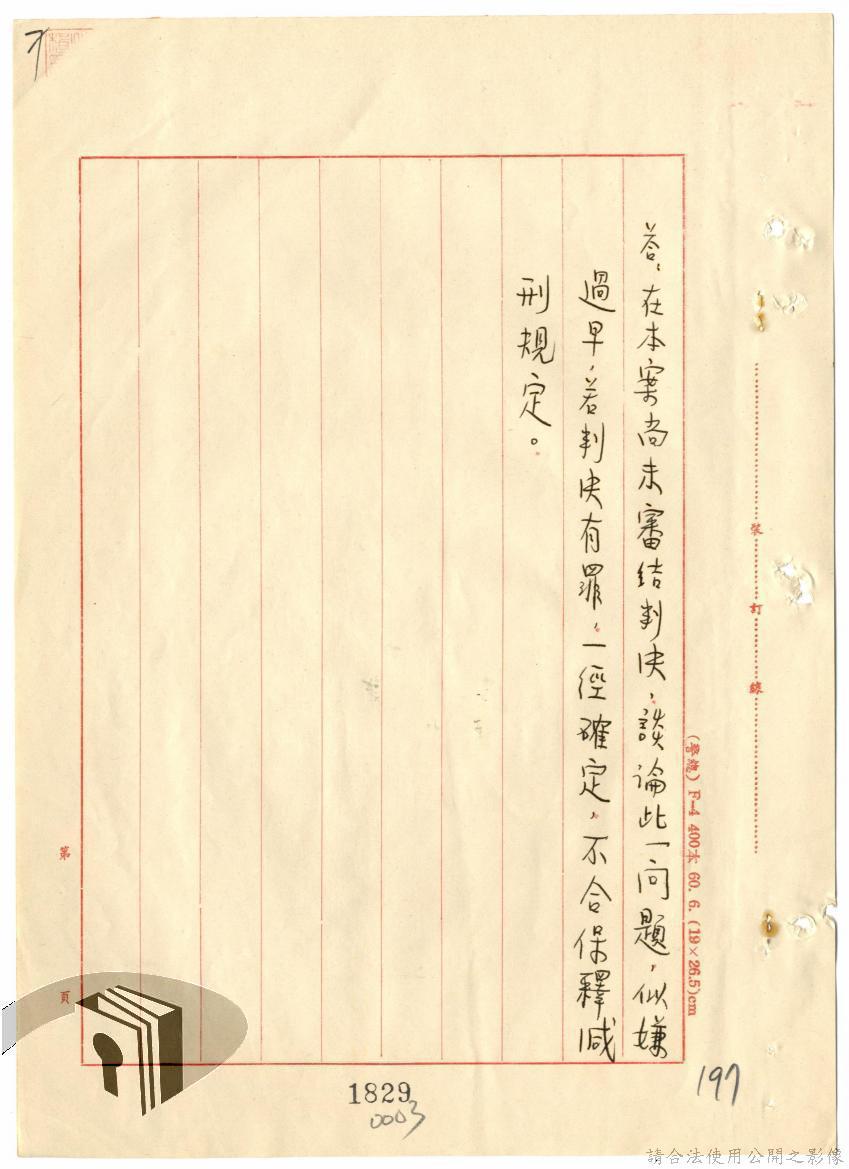 答、在本案尚未審結判決，談論此一問題，似嫌
過早，若判決有罪，一經確定，不合保釋減
刑規定。
裝訂線
(警總) F-4 400本 60. 6. (19×26.5)cm
第 頁
197
1829
0003
請合法使用公開之影像